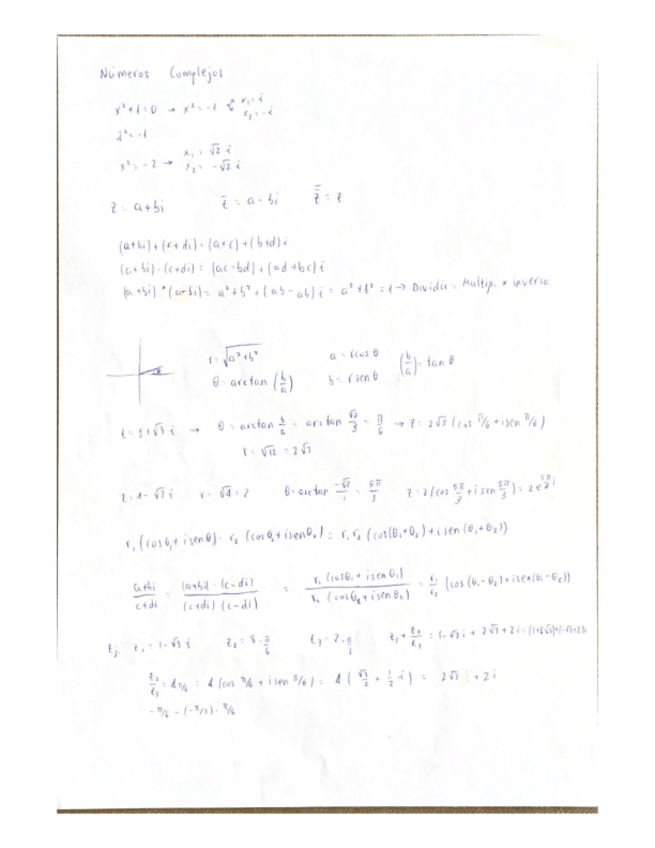 Números Complejos
x²+1=0 → x²=-1 x₁=i
x₂=-i
i²=-1
x²=-2 → x₁=√2 i
x₂=-√2 i
z=a+bi z̄=a-bi z̿=z
(a+bi)+(c+di)=(a+c)+(b+d)i
(a+bi)·(c+di)=(ac-bd)+(ad+bc)i
(a+bi)·(a-bi)=a²+b²+(ab-ab)i=a²+b²=1→ Dividir = Multip. × inverso
r=√a²+b² a=rcosθ (b/a)=tanθ
θ=arctan(b/a) b=rsenθ
z=3+√3 i → θ=arctan b/a=arctan √3/3=π/6 → z=2√3(cos π/6+isen π/6)
r=√12=2√3
z=1-√3 i r=√4=2 θ=arctan -√3/1=5π/3 z=2(cos 5π/3+isen 5π/3)=2e^(5π/3 i)
r₁(cosθ₁+isenθ)·r₂(cosθ₂+isenθ₂)=r₁r₂(cos(θ₁+θ₂)+isen(θ₁+θ₂))
a+bi/c+di=(a+bi)·(c-di)/(c+di)(c-di) = r₁(cosθ₁+isenθ₁)/r₂(cosθ₂+isenθ₂)=r₁/r₂(cos(θ₁-θ₂)+isen(θ₁-θ₂))
Ej. z₁=1-√3 i z₂=8-π/6 z₃=2-π/3 z₁+z₂/z₃=1-√3 i+2√3+2i=(1+2√3)+(-√3+2)i
z₂/z₃=4π/6=4(cos π/6+isen π/6)=4(√3/2+1/2 i)=2√3+2i
-π/6-(-π/3)=π/6